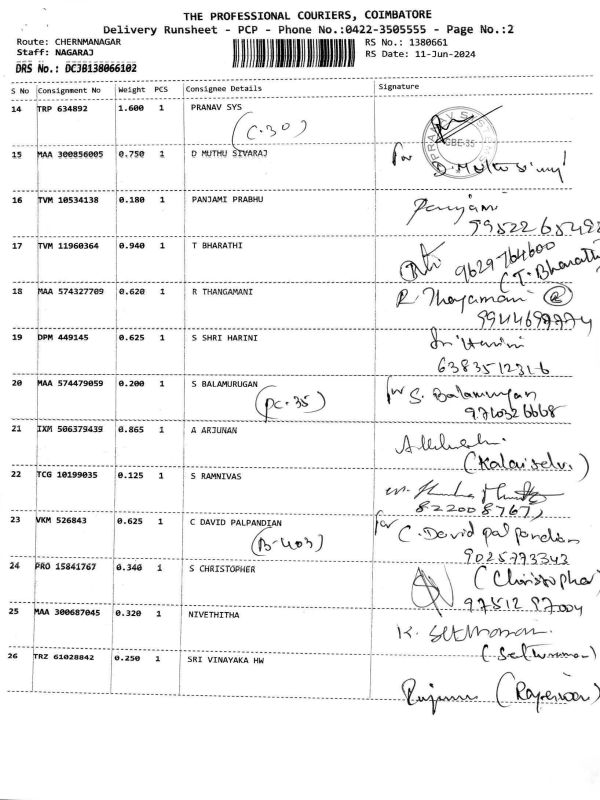 THE PROFESSIONAL COURIERS, COIMBATORE
Delivery Runsheet - PCP - Phone No.:0422-3505555 - Page No.:2
Route: CHERNMANAGAR
Staff: NAGARAJ
DRS No.: DCJB138066102
RS No.: 1380661
RS Date: 11-Jun-2024
S No Consignment No Weight PCS Consignee Details Signature
14 TRP 634892 1.600 1 PRANAV SYS
(C-30)
15 MAA 300856005 0.750 1 D MUTHU SIVARAJ for
16 TVM 10534138 0.180 1 PANJAMI PRABHU Panjami
17 TVM 11960364 0.940 1 T BHARATHI 9629764600
(T. Bharathi
18 MAA 574327709 0.620 1 R THANGAMANI
19 DPM 449145 0.625 1 S SHRI HARINI
6383512316
20 MAA 574479059 0.200 1 S BALAMURUGAN for S. Balamurugan
(PC-35)
21 IXM 506379439 0.865 1 A ARJUNAN
(Kalaiselvi)
22 TCG 10199035 0.125 1 S RAMNIVAS
23 VKM 526843 0.625 1 C DAVID PALPANDIAN for C. David palpandian
(B-403) 9025773343
24 PRO 15841767 0.340 1 S CHRISTOPHER (Christopher
97512 87004
25 MAA 300687045 0.320 1 NIVETHITHA
26 TRZ 61028842 0.250 1 SRI VINAYAKA HW